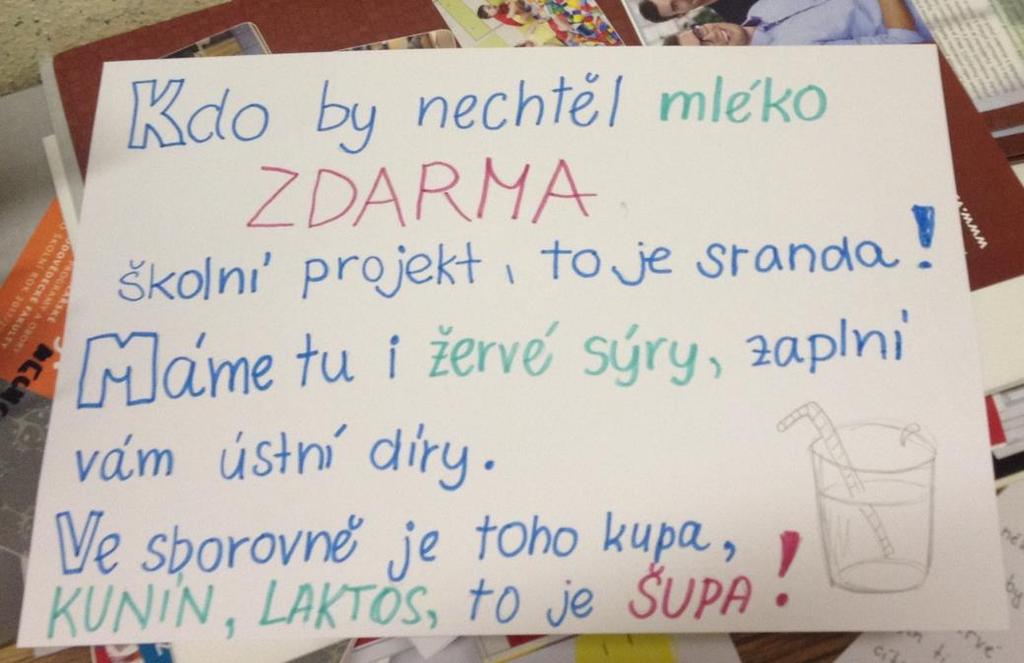 Kdo by nechtěl mléko
ZDARMA
školní projekt, to je sranda!
Máme tu i žervé sýry, zaplní
vám ústní díry.
Ve sborovně je toho kupa,
KUNÍN, LAKTOS, to je ŠUPA!
www.